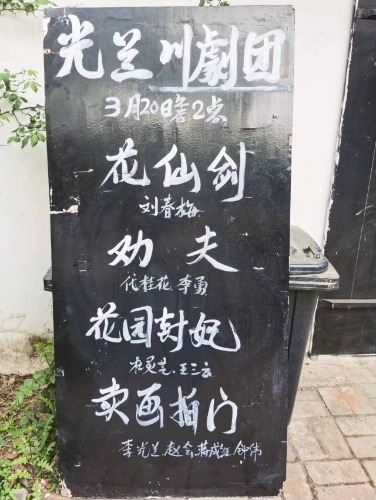 光兰川劇团
3月20日下午2点
花仙剑
刘春梅
劝夫
代桂花 李勇
花园封妃
王三云
卖画拍门
李光兰.赵会.蒋成红.钟伟